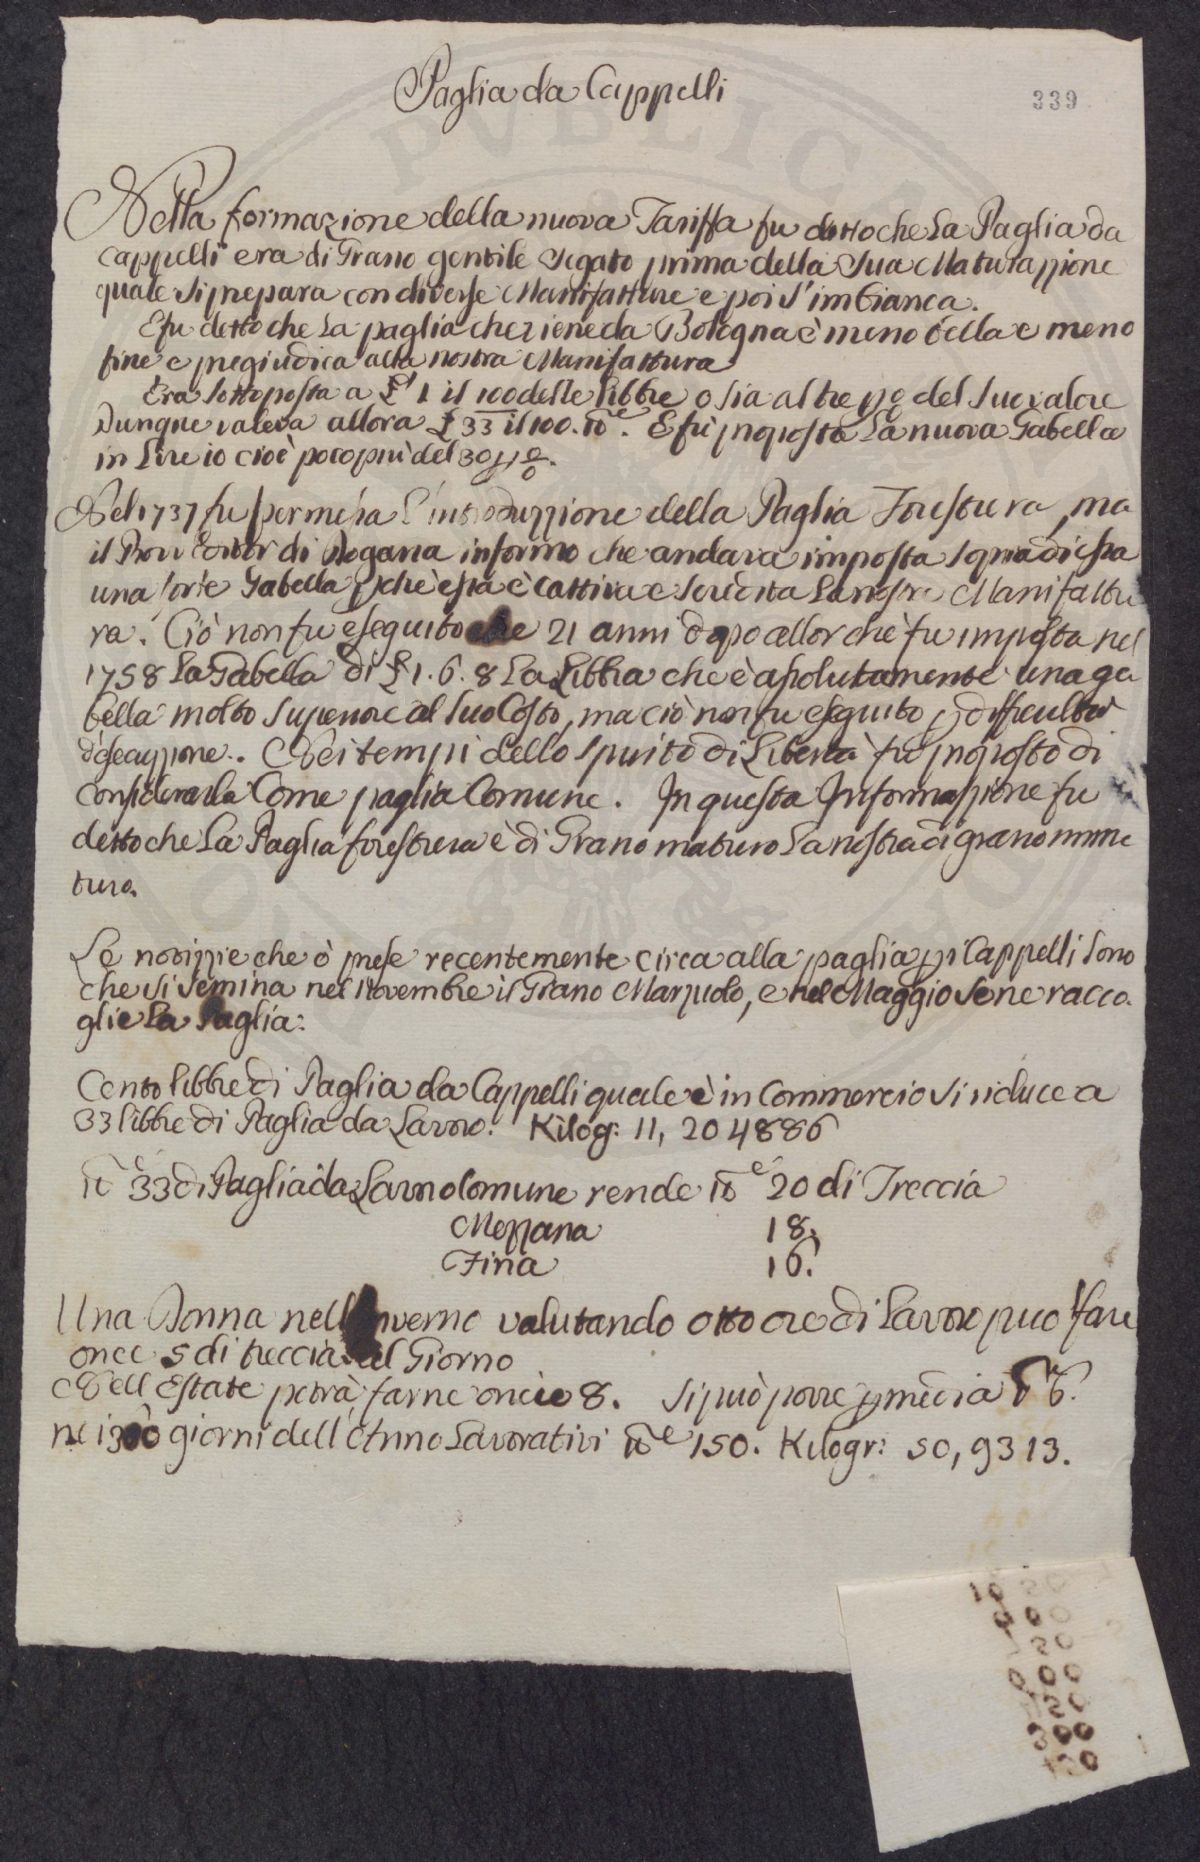 Paglia da Cappelli
339
Nella formazione della nuova Tariffa fu detto che La Paglia da
cappelli era di Grano gentile segato prima della sua Maturazzione
quale si prepara con diverse Manifatture e poi s'imbianca.
E fu detto che La paglia che viene da Bologna è meno bella e meno
fine e pregiudica alla nostra Manifattura
Era sottoposta a £ 1 il 100 delle libbre o sia al tre p% del suo valore
Dunque valeva allora £ 33 il 100. E fu proposta La nuova Gabella
in Lire 10 cioè poco più del 30 p%.
Nel 1737 fu permessa l'introduzzione della Paglia Forestiera, ma
il Provveditor di Dogana informò che andava imposta sopra di essa
una forte Gabella perchè essa è cattiva e scredita La nostra Manifattu
ra. Ciò non fu eseguito che 21 anni dopo allor chè fu imposta nel
1758 La Gabella di £ 1. 6. 8 La Libbra che è assolutamente una ga
bella molto superiore al suo Costo, ma ciò non fu eseguito p difficultà
d'esecuzzione. Nei tempi dello spirito di Libertà fu proposto di
considerarla Come paglia Comune. In questa Informazzione fu
detto che La Paglia forestiera è di Grano maturo La nostra di grano imma
turo.
Le notizzie che ò prese recentemente circa alla paglia p i Cappelli sono
che si semina nel Novembre il Grano Marzuolo, e nel Maggio se ne racco
glie La Paglia:
Cento libbre di Paglia da Cappelli quale è in Commercio si riduce a
33 libbre di Paglia da Lavoro. Kilog: 11, 204886
33 di Paglia da Lavoro Comune rende 20 di Treccia
Mezzana 18.
Fina 16.
Una Donna nell'Inverno valutando otto ore di Lavoro può fare
once 5 di treccia al Giorno
Nell Estate potrà farne oncie 8. Si può porre p media 6.
nei 300 giorni dell'Anno Lavorativi 150. Kilogr: 50, 9313.